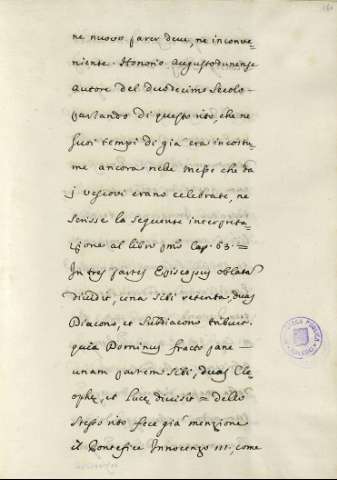 ne nuovo parer deve, ne inconve-
niente. Honorio Augustodunense
Autore del duodecimo secolo
parlando di questo rito, che ne
suoi tempi di già era in costu-
me ancora nelle messe che da
j vescovi erano celebrate, ne
scrisse la seguente interpreta-
zione al libro pmo Cap. 63 =
In tres partes Episcopus oblata
dividit, una sibi retenta, duas
Diacono, et Subdiacono tribuit.
quia Dominus fracto pane
unam partem sibi, duas Cle-
ophe, et Luce divisit = dello
stesso rito fece già menzione
il Pontefice Innocenzo III, come